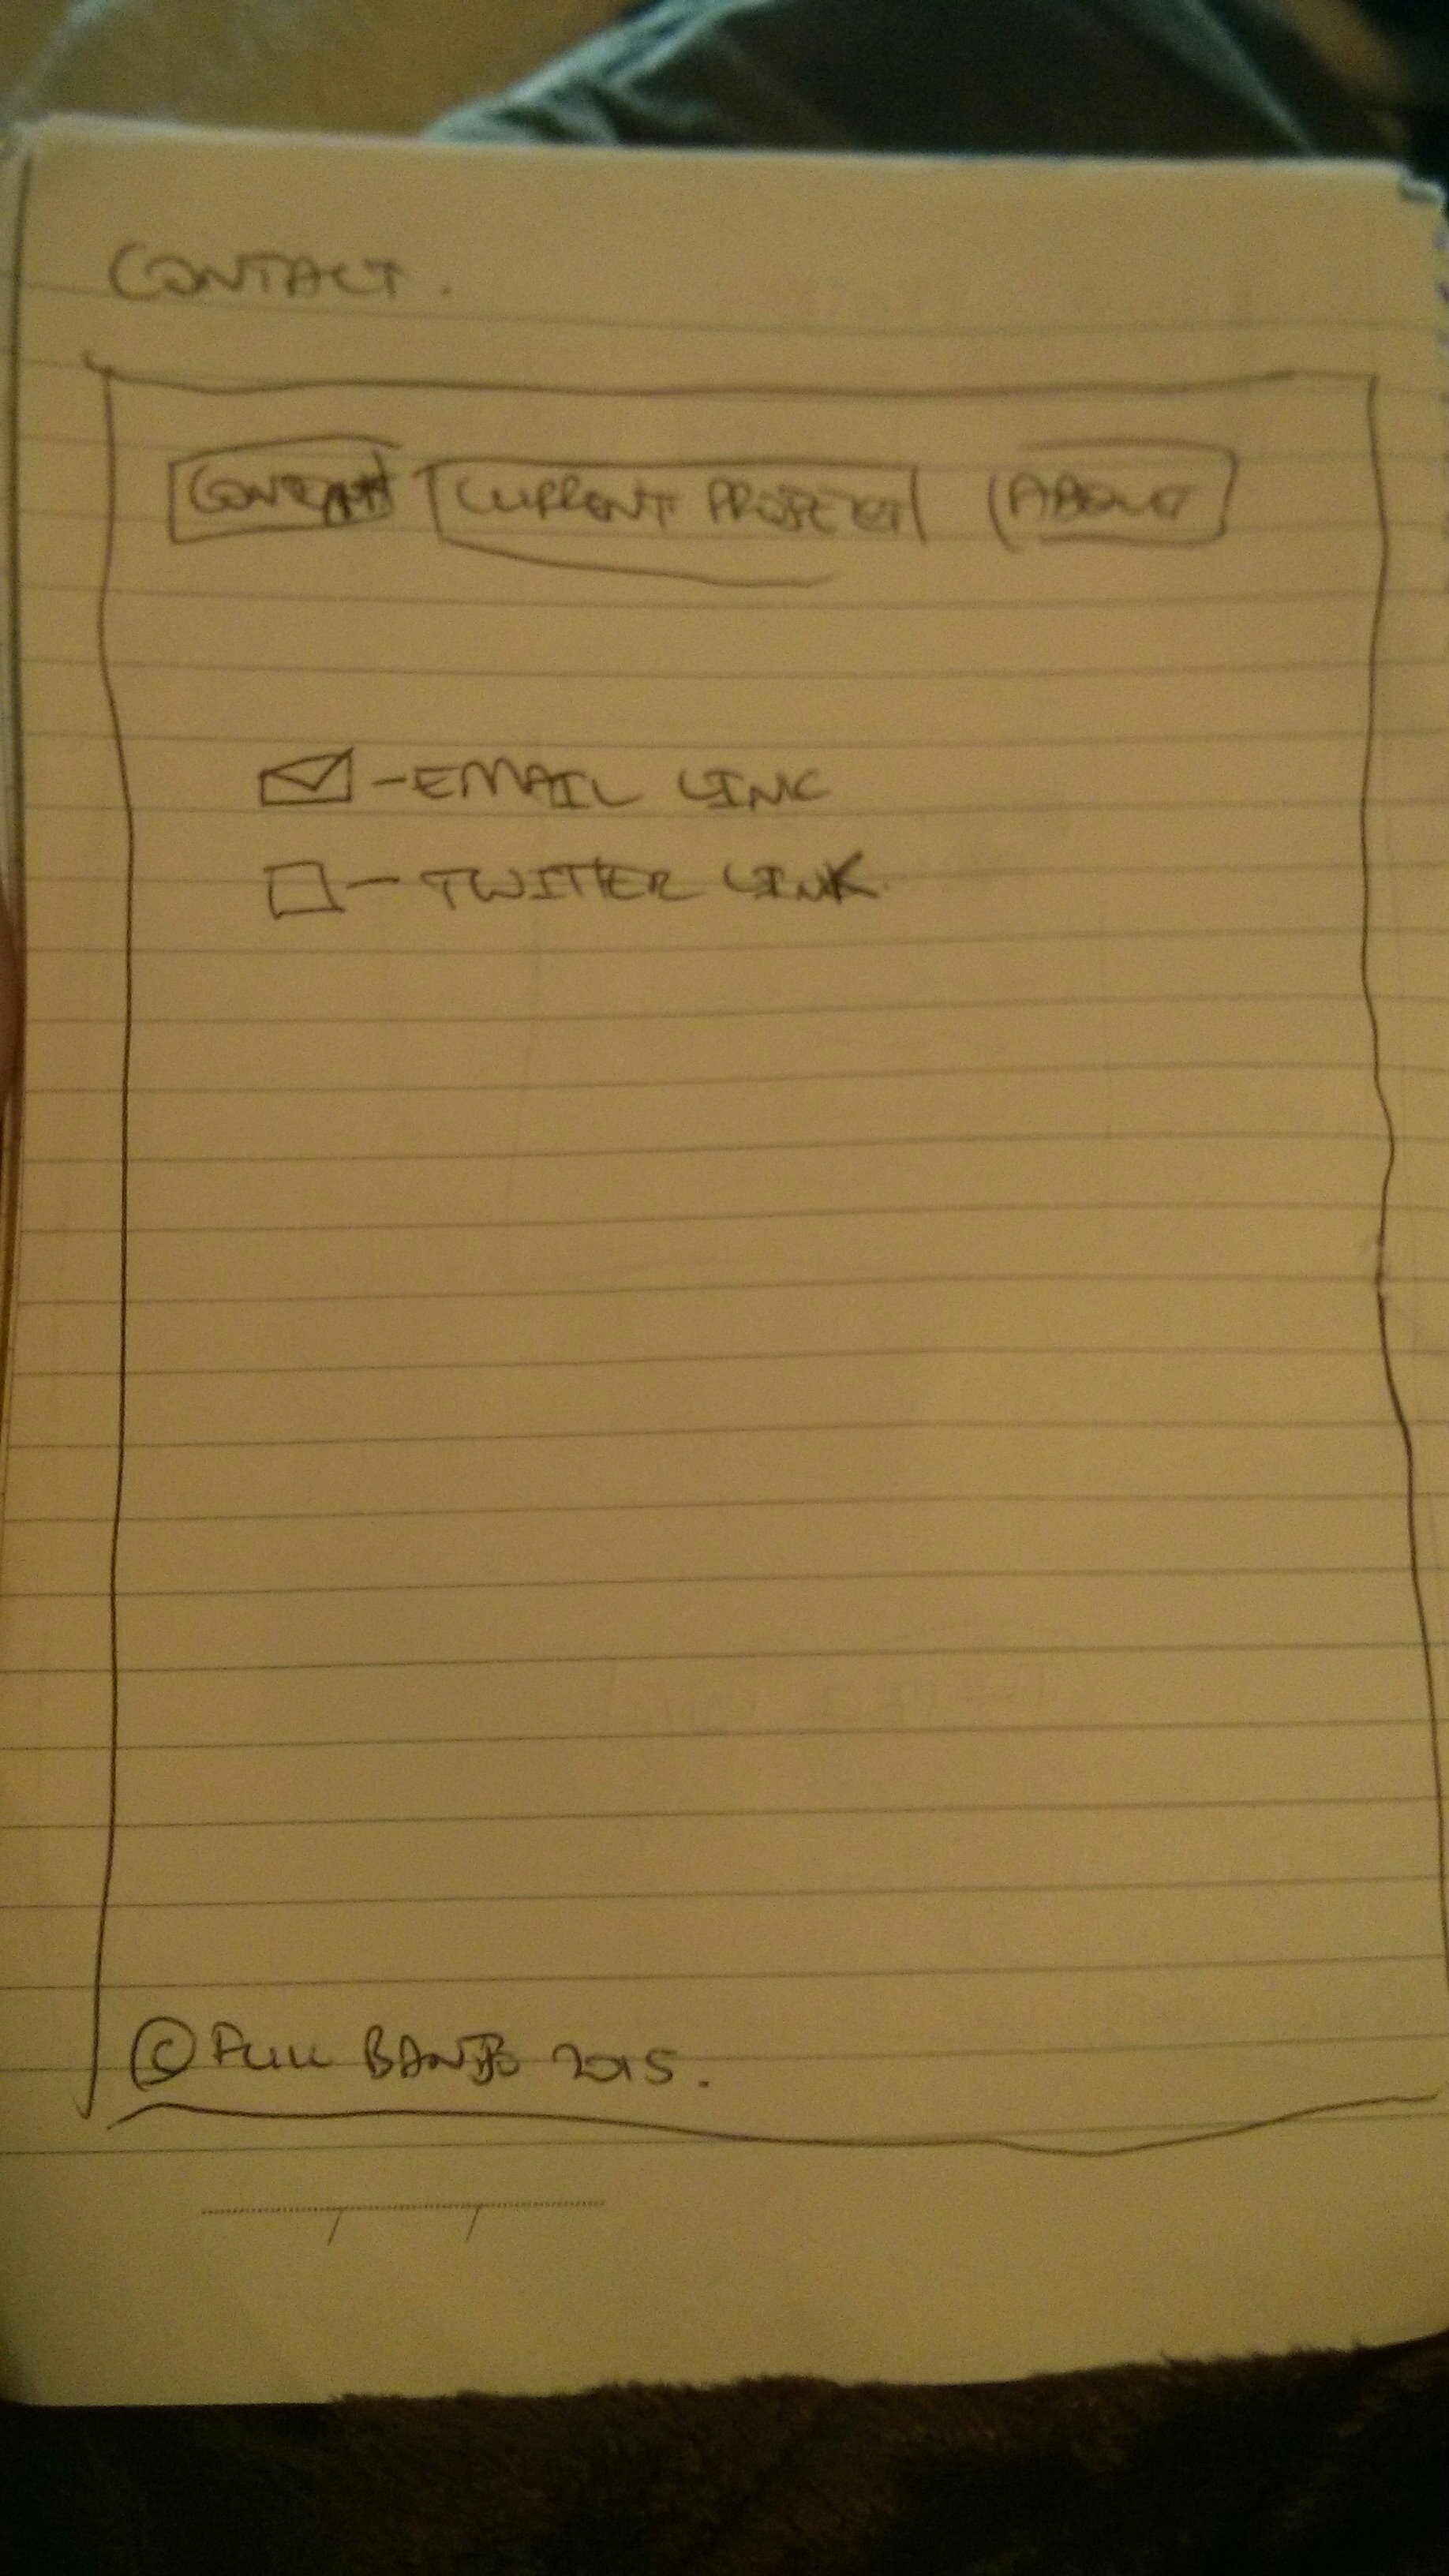 CONTACT.
CONTACT CURRENT PROJECT ABOUT
- EMAIL LINK
- TWITTER LINK.
© FULL BANJO 2015.